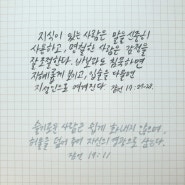 지식이 있는 사람은 말을 신중히
사용하고, 명철한 사람은 감정을
잘 조절한다. 바보라도 침묵하면
지혜롭게 보이고, 입술을 다물면
지성인으로 여겨진다. 잠언 17:27-28.
슬기로운 사람은 쉽게 화내지 않으며,
허물을 덮어 주며 자신의 영광으로 삼는다.
잠언 19:11